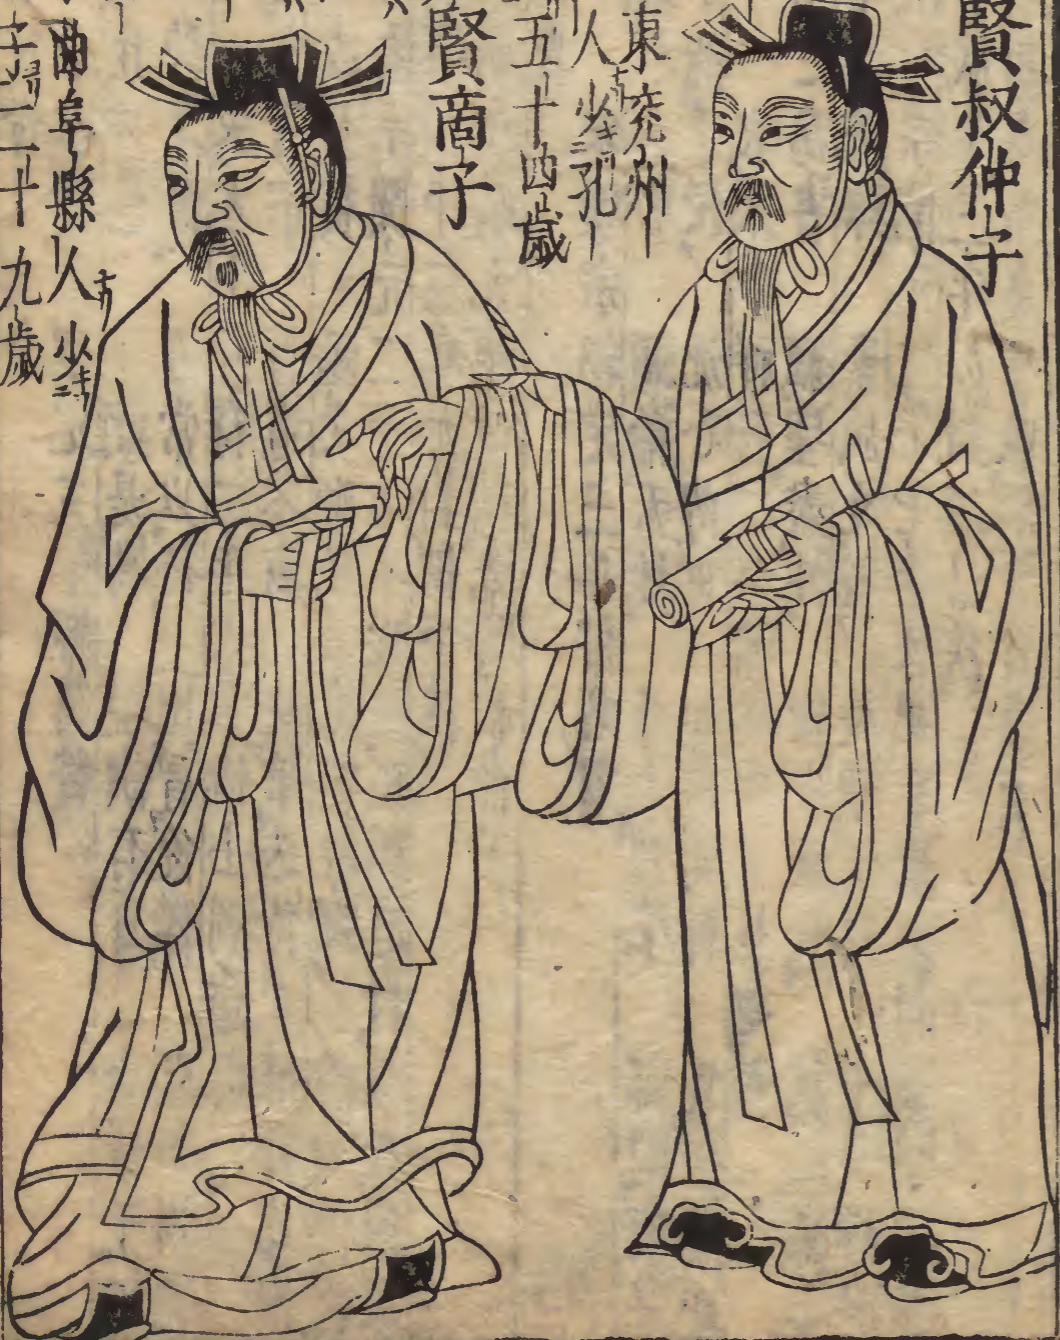 賢叔仲子
東兖州
人少孔
五十四歲
賢商子
曲阜縣人少
二十九歲